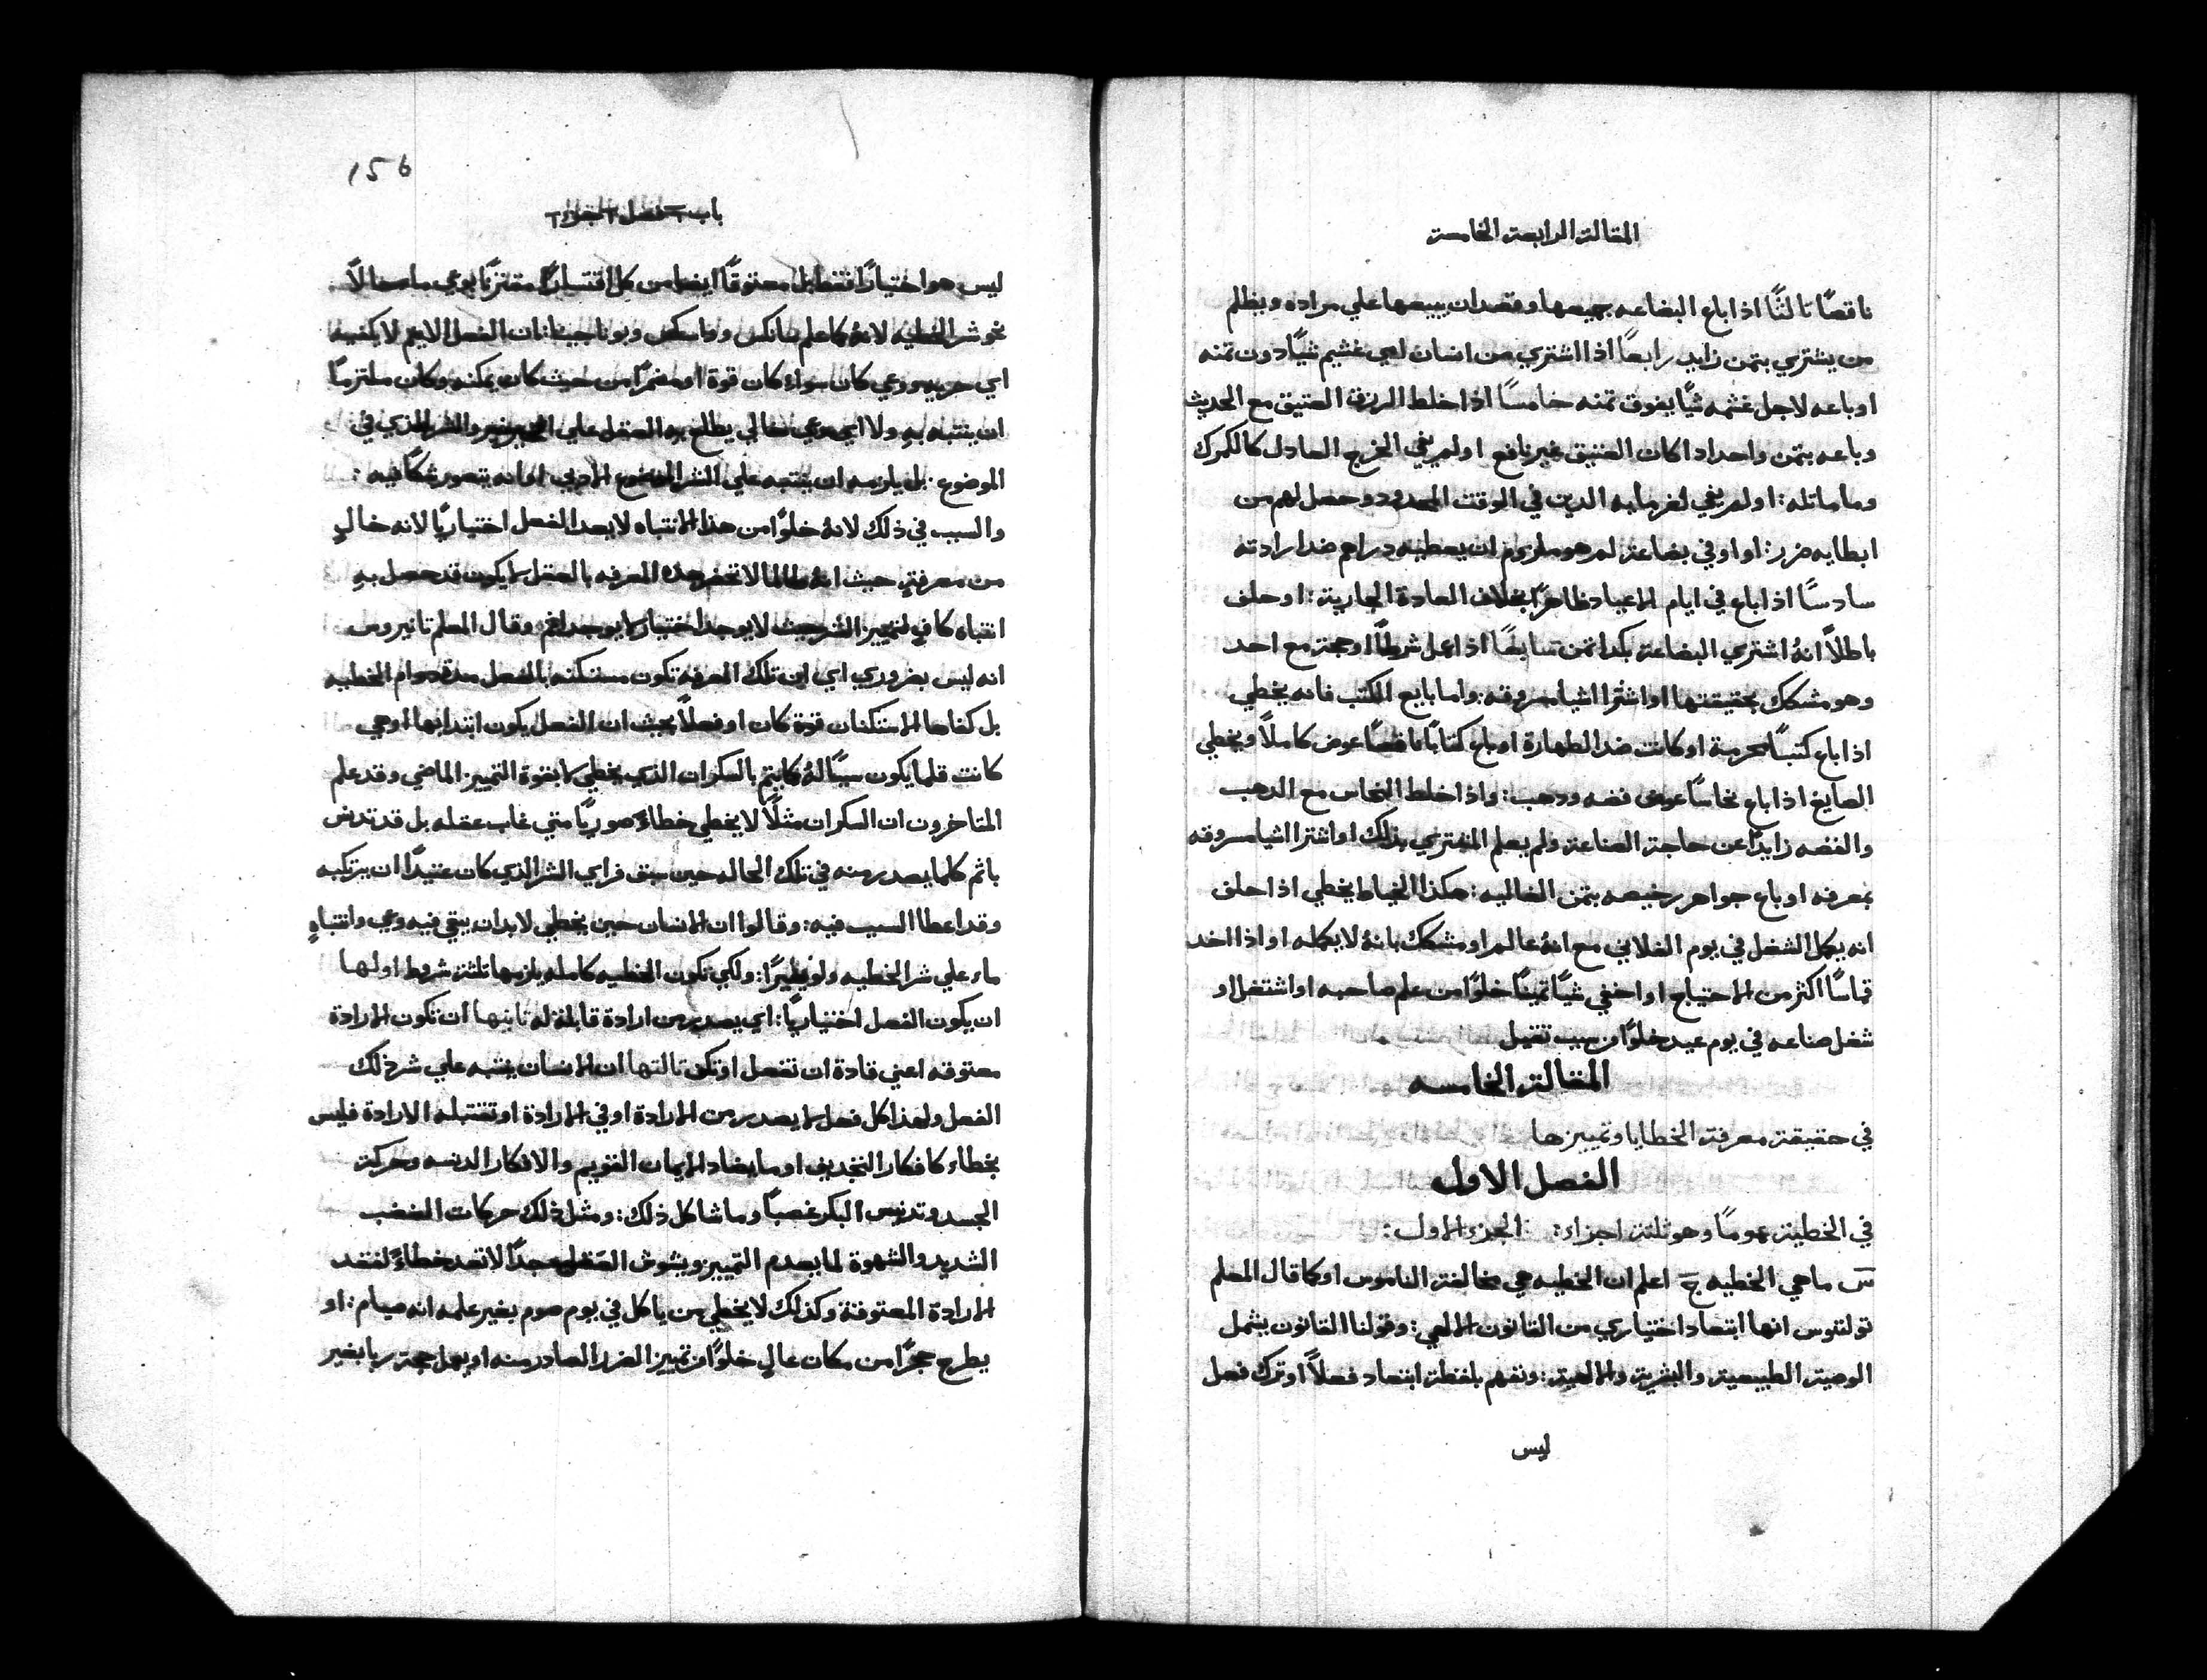 المقالة الرابعة الخامسة
ناقصًا ثالثًا اذا باع البضاعه جميعها وقصد ان يبيعها علي مراده ويظلم
من يشتري بتمن زايد رابعًا اذا اشتري من انسان لعي غشيم شيًا دون تمنه
او باعه لاجل غشمه شيًا يفوق تمنه خامسًا اذا خلط الرزق العتيق مع الحديث
وباعه بتمن واحد اذا كان العتيق غير نافع او لم يفي الخرج العادل كالكمرك
وما ماتله : او لم يفي لغرمايه الدين في الوقت المحدود وحصل لهم من
ابطايه ضرر : او اوفي بضاعة لم هو ملزوم ان يعطيه دراهم ضد ارادته
سادسًا اذا باع في ايام الاعياد ظاهرًا بخلاف العادة الجارية : او حلف
باطلاً انهُ اشتري البضاعة بكدا تمن سابعًا اذا عمل شرطًا او حجة مع احد
وهو مشكك بحقيقتها او اشترا اشيا مسروقه : واما بايع الكتب فانه يخطي
اذا باع كتبًا محرمة او كانت ضد الطهارة او باع كتابًا ناقصًا عوض كاملاً ويخطي
الصايغ اذا باع نحاسًا عوض فضه ودهب : واذا خلط النحاس مع الدهب
والفضه زايدًا عن حاجة الصناعة ولم يعلم المشتري بذلك او اشترا اشيا مسروقه
بمعرفه او باع جواهر رخيصه بتمن الغاليه : هكذا الخياط يخطي اذا حلف
انه يكمل الشغل في يوم الفلاني مع انهُ عالم او مشكك بانهُ لا يكمله او اذا اخد
قماسًا اكثر من الاحتياج او اخفي شيًا تمينًا خلوًا من علم صاحبه او اشتغل او
شغل صناعه في يوم عيد خلوًا من سبب تقيل
المقالة الخامسه
في حقيقة معرفة الخطايا وتمييزها
الفصل الاول
في الخطية عمومًا وهو ثلثة اجزاء : الجزء الاول :
س ما هي الخطيه ج اعلم ان الخطيه هي مخالفة الناموس او كما قال المعلم
تولتوس انها ابتعاد اختياري من القانون الالهي : وقولنا القانون يشمل
الوصية الطبيعية والبشرية والالهية : ونفهم بلفظة ابتعاد فعلاً او ترك فعل
ليس
156
باب فصل جزء
ليس هو اختيارًا فقط بل معتوقًا ايضا من كل اقتسارًا مقترنًا بوعي ما حالاً
نحو شر الخطيه لانهُ كما علم سانكس وفاسكس وبوناجينا : ان الفعل الاثيم لا يكتبه
اي حريه ووعي كان سواء كان قوة او مضمرًا من حيث كان يمكنه وكان ملتزمًا
ان ينتبه به ولا اي وعي نقالي يطلع به العقل علي الخير والشر الذي في
الموضوع . بل يلزمه ان ينتبه علي الشر الادبي اما انه يتصور شكًا فيه :
والسبب في ذلك لانهُ خلوًا من هذا الانتباه لا يعد الفعل اختياريًا لانه خالٍ
من معرفتهِ حيث انهُ طالما لا تحضر هذه المعرفه بالعقل لا يكون قد حصل بهِ
انتباه كافٍ لتمييز الشر حيث لا يوجد اختيار لا يوجد اثم وقال المعلم تانيروس
انه ليس بضروري اي ان تلك المعرفه تكون مستكنه بالفعل مدة دوام الخطيه
بل كفاها الاستكنان قوة كان او فعلاً بحيث ان الفعل يكون ابتدابها او هي
كانت قلما يكون سببًا لهُ كما يتم بالسكران الذي يخطي لا بقوة التمييز الماضي وقد علم
المتاخرون ان السكران مثلاً لا يخطي خطاءً صوريًا متي غاب عقله بل قد تدنس
باثم كلما يصدر منه في تلك الحاله حين سبق فراي الشر الذي كان عتيدًا ان يرتكبه
وقد اعطا السبب فيه : وقالوا ان الانسان حين يخطي لا بد ان يبقي فيه وعي وانتباهٍ
ماء علي شر الخطيه ولو يسيرًا : ولكي تكون الخطيه كامله يلزمها ثلثة شروط اولها
ان يكون الفعل اختياريًا : اي يصدر من ارادة قابلة له ثانيها ان تكون الارادة
معتوقه اعني قادة ان تفعل او تكن ثالثها ان الانسان ينتبه علي شر ذلك
الفعل ولهذا كل فعل لا يصدر من الارادة او في الارادة او تقتبله الارادة فليس
بخطاء كافكار التجديف او ما يضاد الايمان القويم والافكار الدنسه وحركة
الجسد وتدنيس البكر غصبًا وما شاكل ذلك : ومثل ذلك حركات الغضب
الشديد والشهوة لما يعدم التمييز ويشوش العقل جدًا لا تعد خطاءً لفقد
الارادة المعتوقة وكذلك لا يخطي من ياكل في يوم صوم بغير علمه انه صيام : او
يطرح حجرًا من مكان عالي خلوًا من تمييز الضرر الصادر منه او يعمل حجة ربا بغير